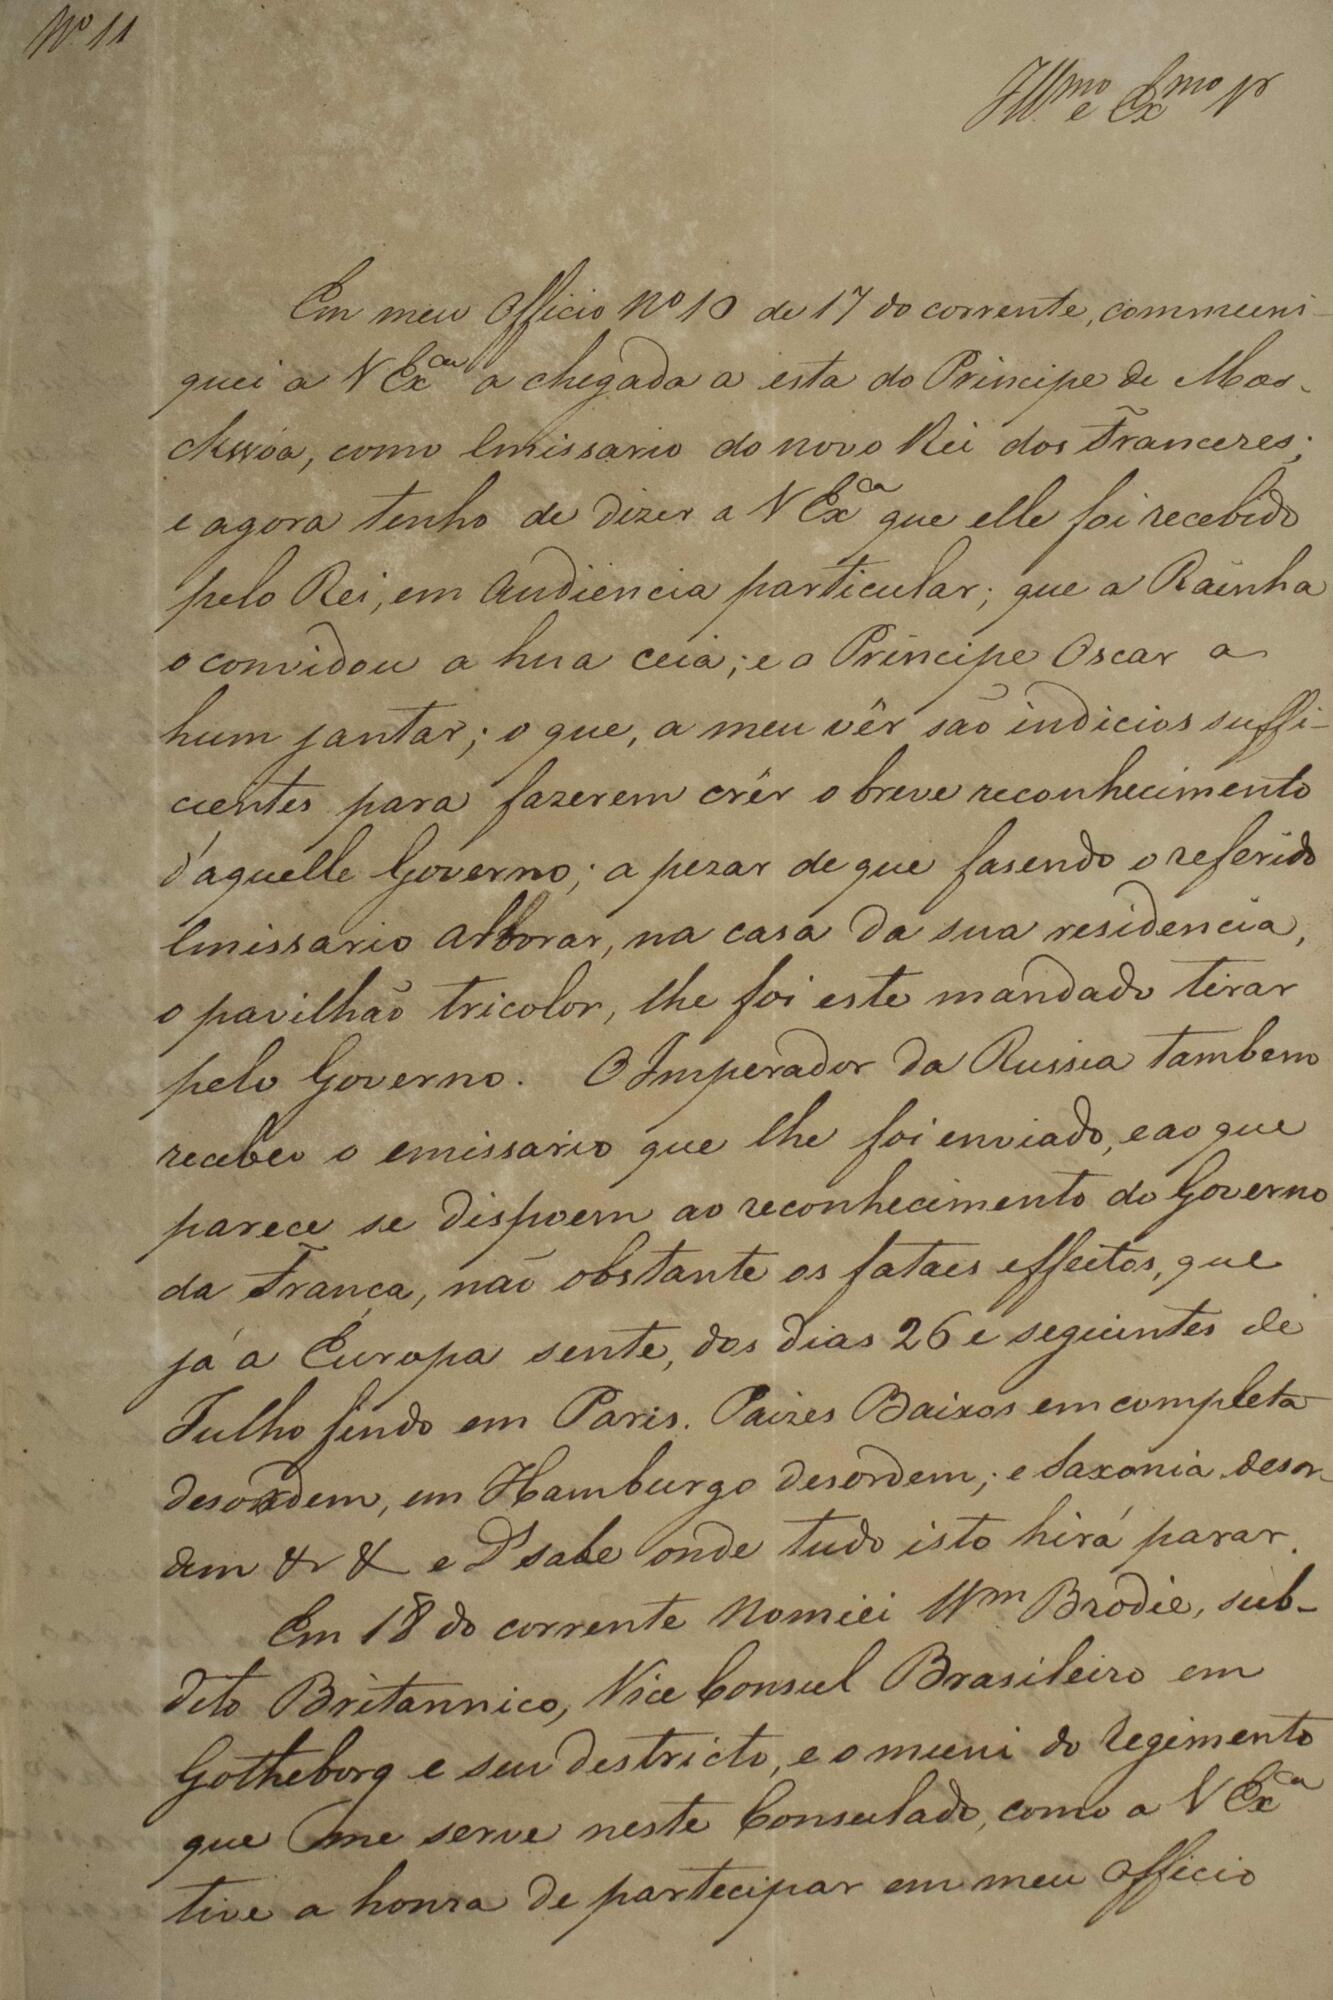 Nº 11
Illmo e Exmo Sr
Em meu Officio Nº 10 de 17 do corrente, communi-
quei a V Exca a chegada a esta do Principe de Mos-
ckwóa, como Emissario do novo Rei dos Francezes;
e agora tenho de dizer a V Exca que elle foi recebido
pelo Rei, em Audiencia particular; que a Rainha
o convidou a hua ceia; e o Principe Oscar a
hum jantar; o que, a meu vêr são indicios suffi-
cientes para fazerem crêr o breve reconhecimento
d'aquelle Governo; a pezar de que fasendo o referido
Emissario Arborar, na casa da sua residencia,
o pavilhão tricolor, lhe foi este mandado tirar
pelo Governo. O Imperador da Russia tambem
recebeo o emissario que lhe foi enviado, e ao que
parece se dispoem ao reconhecimento do Governo
da França, não obstante os fataes effeitos, que
já a Europa sente, dos dias 26 e seguintes de
Julho findo em Paris. Paizes Baixos em completa
desordem, em Hamburgo desordem; e Saxonia desor-
dem & & e Ds sabe onde tudo isto hirá parar.
Em 18 do corrente Nomiei Wm Brodie, sub-
dito Britannico, Vice Consul Brasileiro em
Gotheborg e seu destricto, e o muni do Regimento
que me serve neste Consulado, como a V Exca
tive a honra de partecipar em meu Officio